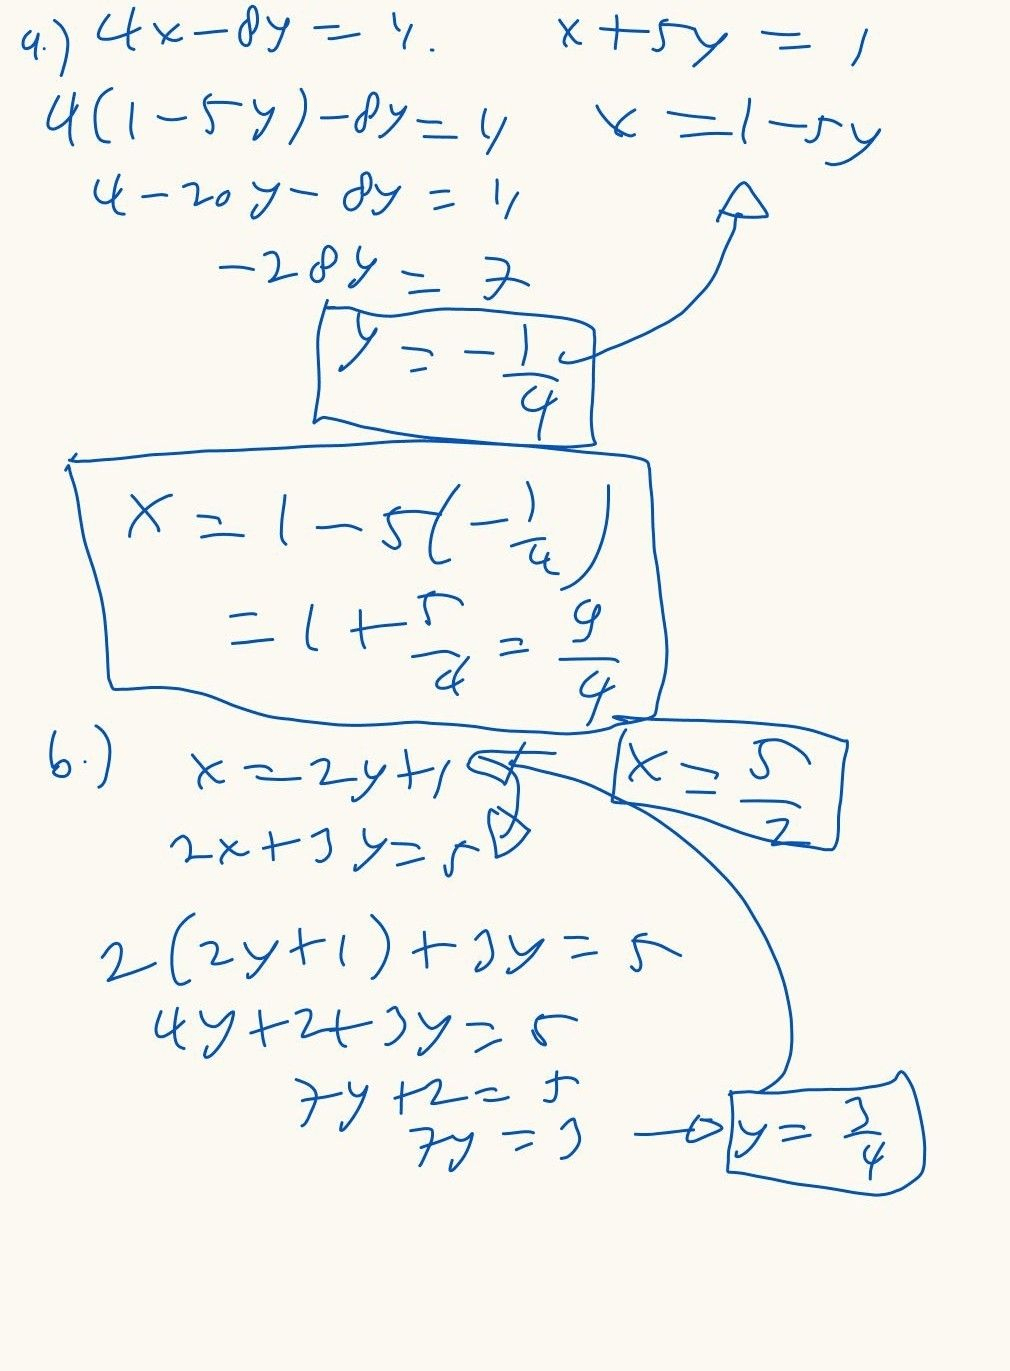 a.) 4x-8y = 11.
x+5y = 1
4(1-5y)-8y = 11
x = 1-5y
4-20y-8y = 11
-28y = 7
y = -1/4
x = 1-5(-1/4)
= 1+5/4 = 9/4
b.) x = 2y+1
x = 5/2
2x+3y=5
2(2y+1)+3y = 5
4y+2+3y = 5
7y+2 = 5
7y = 3 → y = 3/4